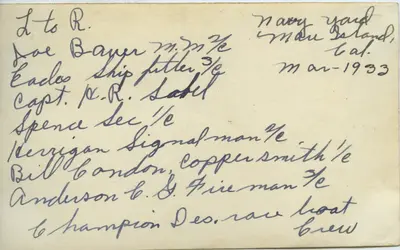 L to R.
Navy Yard
Mare Island,
Cal.
Mar-1933
Joe Bauer M.M 2/c
Eades Ship fitter 3/c
Capt. H.R.
Spence Sec 1/c
Kerrigan Signalman 2/c
Bill Condon, Coppersmith 1/c
Anderson C. G. Fireman 3/c
Champion Des. race boat
Crew